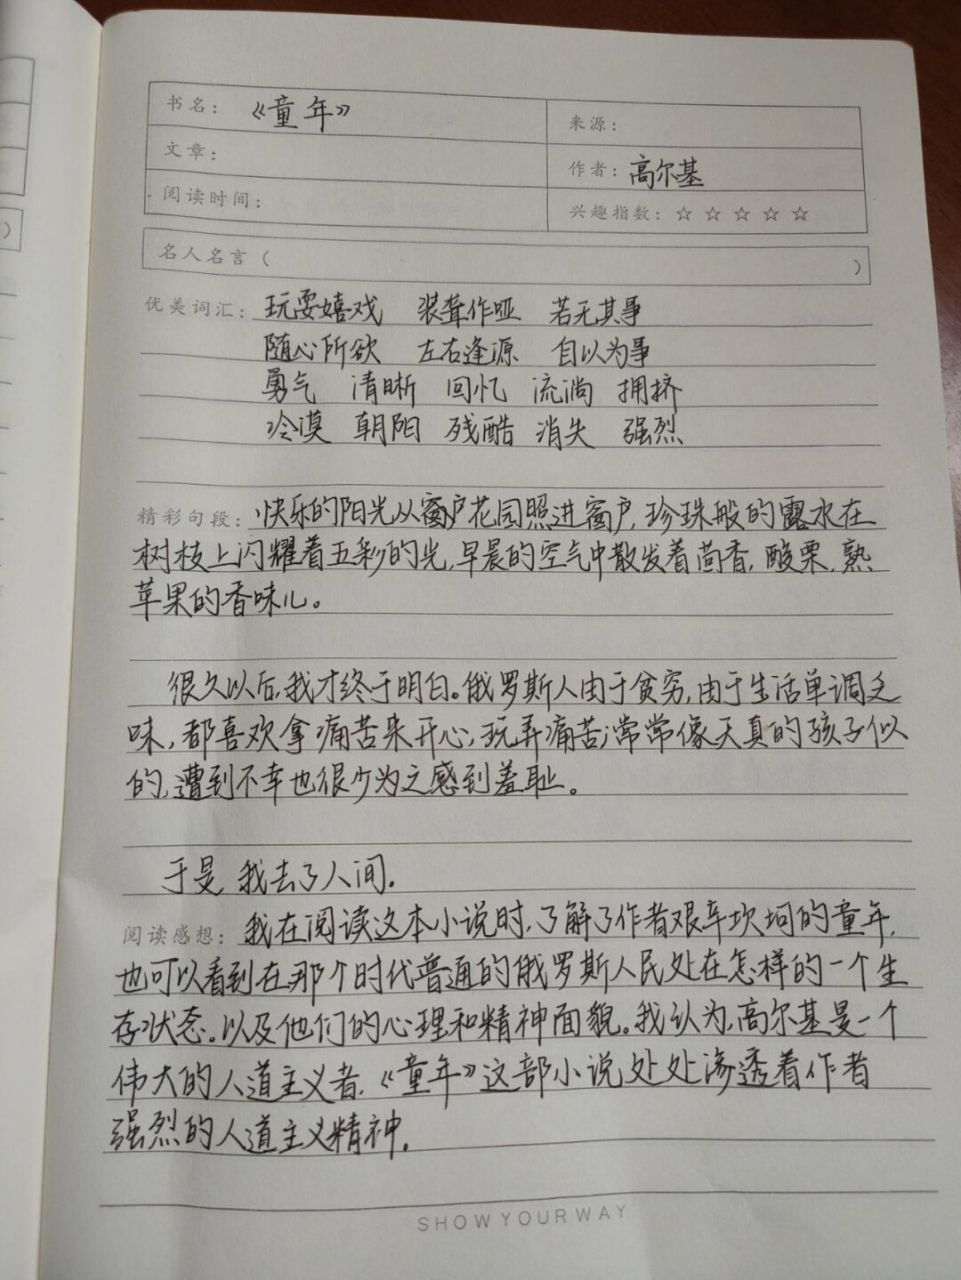 书名：《童年》
来源：
文章：
作者：高尔基
阅读时间：
兴趣指数：☆ ☆ ☆ ☆ ☆
名人名言（ ）
优美词汇：玩耍嬉戏 装聋作哑 若无其事
随心所欲 左右逢源 自以为事
勇气 清晰 回忆 流淌 拥挤
冷漠 朝阳 残酷 消失 强烈
精彩句段：快乐的阳光从窗户花园照进窗户，珍珠般的露水在
树枝上闪耀着五彩的光，早晨的空气中散发着茴香，酸栗，熟
苹果的香味儿。
很久以后，我才终于明白。俄罗斯人由于贫穷，由于生活单调乏
味，都喜欢拿痛苦来开心，玩弄痛苦；常常像天真的孩子似
的，遭到不幸也很少为之感到羞耻。
于是 我去了人间.
阅读感想：我在阅读这本小说时，了解了作者艰辛坎坷的童年，
也可以看到在那个时代普通的俄罗斯人民处在怎样的一个生
存状态，以及他们的心理和精神面貌。我认为，高尔基是一个
伟大的人道主义者，《童年》这部小说处处渗透着作者
强烈的人道主义精神.
SHOW YOUR WAY